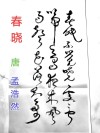 春眠不觉晓处处闻
啼鸟夜来风雨声
花落知多少
春晓
唐
孟浩然